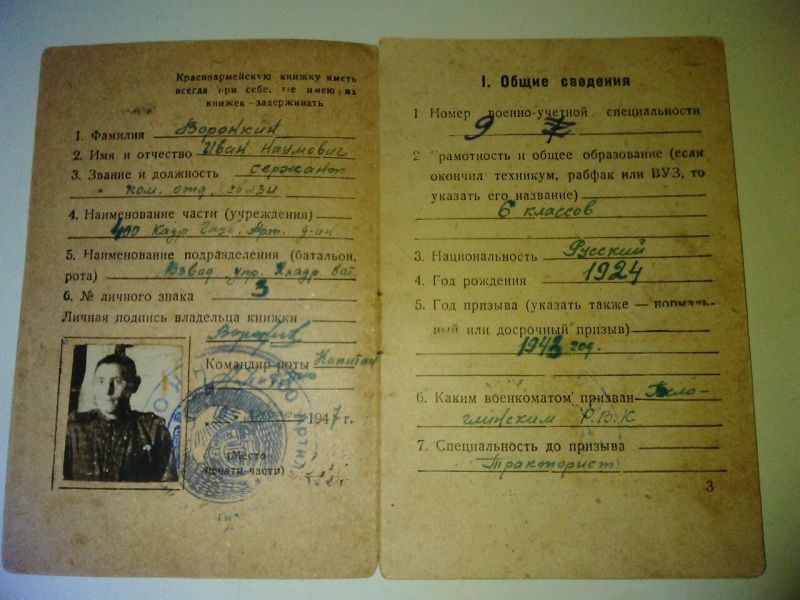 Красноармейскую книжку иметь
всегда при себе. Не имеющих
книжек - задерживать
1. Фамилия Воронкин
2. Имя и отчество Иван Наумович
3. Звание и должность сержант
ком. отд. связи
4. Наименование части (учреждения)
Кадр. Арт. д-он.
5. Наименование подразделения (батальон,
рота) Взвод упр. бат.
6. № личного знака 3
Личная подпись владельца книжки
Командир роты Капитан
1947 г.
(Место
печати части)
I. Общие сведения
1 Номер военно-учетной специальности
9
2 Грамотность и общее образование (если
окончил техникум, рабфак или ВУЗ, то
указать его название)
6 классов
3. Национальность Русский
4. Год рождения 1924
5. Год призыва (указать также — нормаль-
ный или досрочный призыв)
1943 год.
6. Каким военкоматом призван Бело-
глинским Р.В.К
7. Специальность до призыва
Тракторист
3